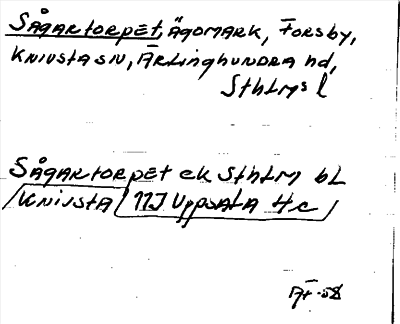 Sågartorpet, Ägomark, Forsby,
Knivsta sn, Ärlinghundra hd,
Sthlms l
Sågartorpet ek Sthlm bl
Knivsta 11I Uppsala 4c
-58